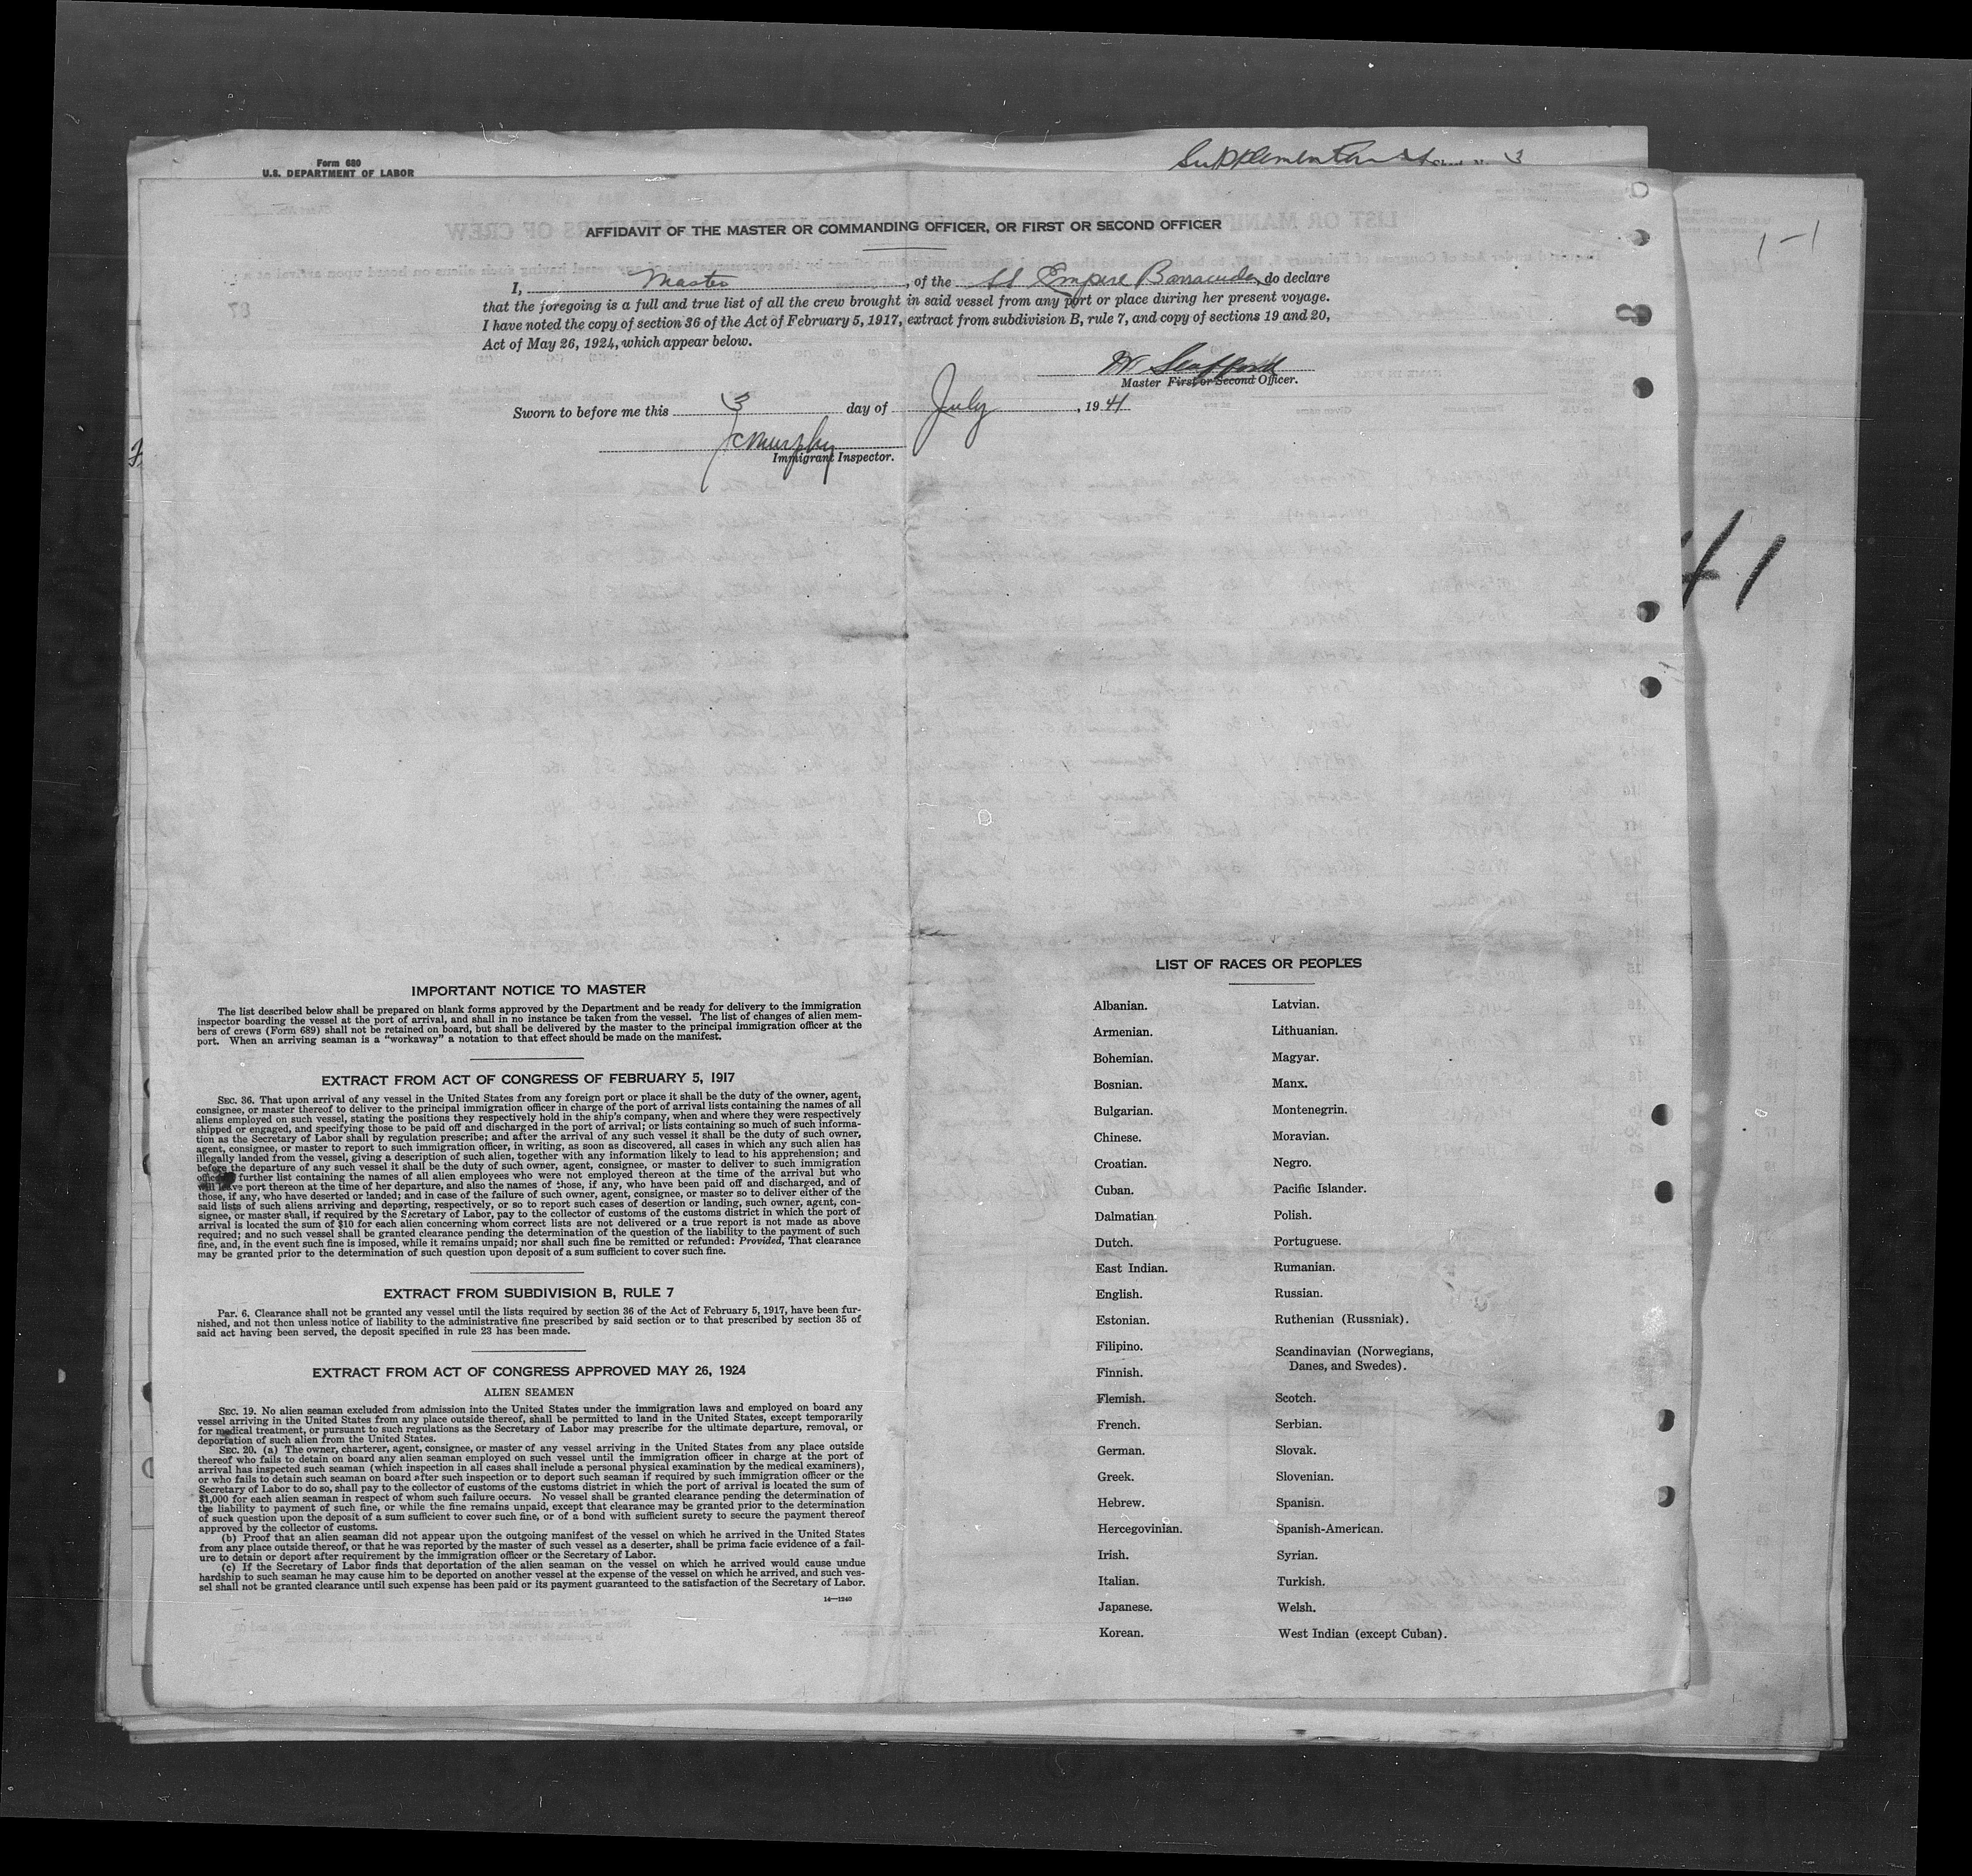 Form 680
U.S. DEPARTMENT OF LABOR
Supplementary Sheet No. 3
AFFIDAVIT OF THE MASTER OR COMMANDING OFFICER, OR FIRST OR SECOND OFFICER
1-1
I, Master, of the SS Empire Barracuda, do declare
that the foregoing is a full and true list of all the crew brought in said vessel from any port or place during her present voyage.
I have noted the copy of section 36 of the Act of February 5, 1917, extract from subdivision B, rule 7, and copy of sections 19 and 20,
Act of May 26, 1924, which appear below.
Master First or Second Officer.
Sworn to before me this 3 day of July, 1941
JC Murphy
Immigrant Inspector.
41
IMPORTANT NOTICE TO MASTER
The list described below shall be prepared on blank forms approved by the Department and be ready for delivery to the immigration
inspector boarding the vessel at the port of arrival, and shall in no instance be taken from the vessel. The list of changes of alien mem-
bers of crews (Form 689) shall not be retained on board, but shall be delivered by the master to the principal immigration officer at the
port. When an arriving seaman is a "workaway" a notation to that effect should be made on the manifest.
EXTRACT FROM ACT OF CONGRESS OF FEBRUARY 5, 1917
SEC. 36. That upon arrival of any vessel in the United States from any foreign port or place it shall be the duty of the owner, agent,
consignee, or master thereof to deliver to the principal immigration officer in charge of the port of arrival lists containing the names of all
aliens employed on such vessel, stating the positions they respectively hold in the ship's company, when and where they were respectively
shipped or engaged, and specifying those to be paid off and discharged in the port of arrival; or lists containing so much of such informa-
tion as the Secretary of Labor shall by regulation prescribe; and after the arrival of any such vessel it shall be the duty of such owner,
agent, consignee, or master to report to such immigration officer, in writing, as soon as discovered, all cases in which any such alien has
illegally landed from the vessel, giving a description of such alien, together with any information likely to lead to his apprehension; and
before the departure of any such vessel it shall be the duty of such owner, agent, consignee, or master to deliver to such immigration
officer a further list containing the names of all alien employees who were not employed thereon at the time of the arrival but who
will leave port thereon at the time of her departure, and also the names of those, if any, who have been paid off and discharged, and of
those, if any, who have deserted or landed; and in case of the failure of such owner, agent, consignee, or master so to deliver either of the
said lists of such aliens arriving and departing, respectively, or so to report such cases of desertion or landing, such owner, agent, con-
signee, or master shall, if required by the Secretary of Labor, pay to the collector of customs of the customs district in which the port of
arrival is located the sum of $10 for each alien concerning whom correct lists are not delivered or a true report is not made as above
required; and no such vessel shall be granted clearance pending the determination of the question of the liability to the payment of such
fine, and, in the event such fine is imposed, while it remains unpaid; nor shall such fine be remitted or refunded: Provided, That clearance
may be granted prior to the determination of such question upon deposit of a sum sufficient to cover such fine.
EXTRACT FROM SUBDIVISION B, RULE 7
Par. 6. Clearance shall not be granted any vessel until the lists required by section 36 of the Act of February 5, 1917, have been fur-
nished, and not then unless notice of liability to the administrative fine prescribed by said section or to that prescribed by section 35 of
said act having been served, the deposit specified in rule 23 has been made.
EXTRACT FROM ACT OF CONGRESS APPROVED MAY 26, 1924
ALIEN SEAMEN
SEC. 19. No alien seaman excluded from admission into the United States under the immigration laws and employed on board any
vessel arriving in the United States from any place outside thereof, shall be permitted to land in the United States, except temporarily
for medical treatment, or pursuant to such regulations as the Secretary of Labor may prescribe for the ultimate departure, removal, or
deportation of such alien from the United States.
SEC. 20. (a) The owner, charterer, agent, consignee, or master of any vessel arriving in the United States from any place outside
thereof who fails to detain on board any alien seaman employed on such vessel until the immigration officer in charge at the port of
arrival has inspected such seaman (which inspection in all cases shall include a personal physical examination by the medical examiners),
or who fails to detain such seaman on board after such inspection or to deport such seaman if required by such immigration officer or the
Secretary of Labor to do so, shall pay to the collector of customs of the customs district in which the port of arrival is located the sum of
$1,000 for each alien seaman in respect of whom such failure occurs. No vessel shall be granted clearance pending the determination of
the liability to payment of such fine, or while the fine remains unpaid, except that clearance may be granted prior to the determination
of such question upon the deposit of a sum sufficient to cover such fine, or of a bond with sufficient surety to secure the payment thereof
approved by the collector of customs.
(b) Proof that an alien seaman did not appear upon the outgoing manifest of the vessel on which he arrived in the United States
from any place outside thereof, or that he was reported by the master of such vessel as a deserter, shall be prima facie evidence of a fail-
ure to detain or deport after requirement by the immigration officer or the Secretary of Labor.
(c) If the Secretary of Labor finds that deportation of the alien seaman on the vessel on which he arrived would cause undue
hardship to such seaman he may cause him to be deported on another vessel at the expense of the vessel on which he arrived, and such ves-
sel shall not be granted clearance until such expense has been paid or its payment guaranteed to the satisfaction of the Secretary of Labor.
14—1240
LIST OF RACES OR PEOPLES
Albanian.
Armenian.
Bohemian.
Bosnian.
Bulgarian.
Chinese.
Croatian.
Cuban.
Dalmatian.
Dutch.
East Indian.
English.
Estonian.
Filipino.
Finnish.
Flemish.
French.
German.
Greek.
Hebrew.
Hercegovinian.
Irish.
Italian.
Japanese.
Korean.
Latvian.
Lithuanian.
Magyar.
Manx.
Montenegrin.
Moravian.
Negro.
Pacific Islander.
Polish.
Portuguese.
Rumanian.
Russian.
Ruthenian (Russniak).
Scandinavian (Norwegians,
Danes, and Swedes).
Scotch.
Serbian.
Slovak.
Slovenian.
Spanish.
Spanish-American.
Syrian.
Turkish.
Welsh.
West Indian (except Cuban).